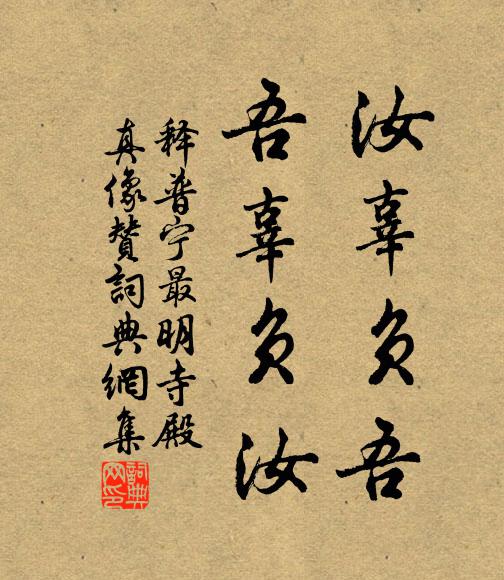 汝辜负吾
吾辜负汝
释普宁最明寺殿
真像赞词典網集
词典网印